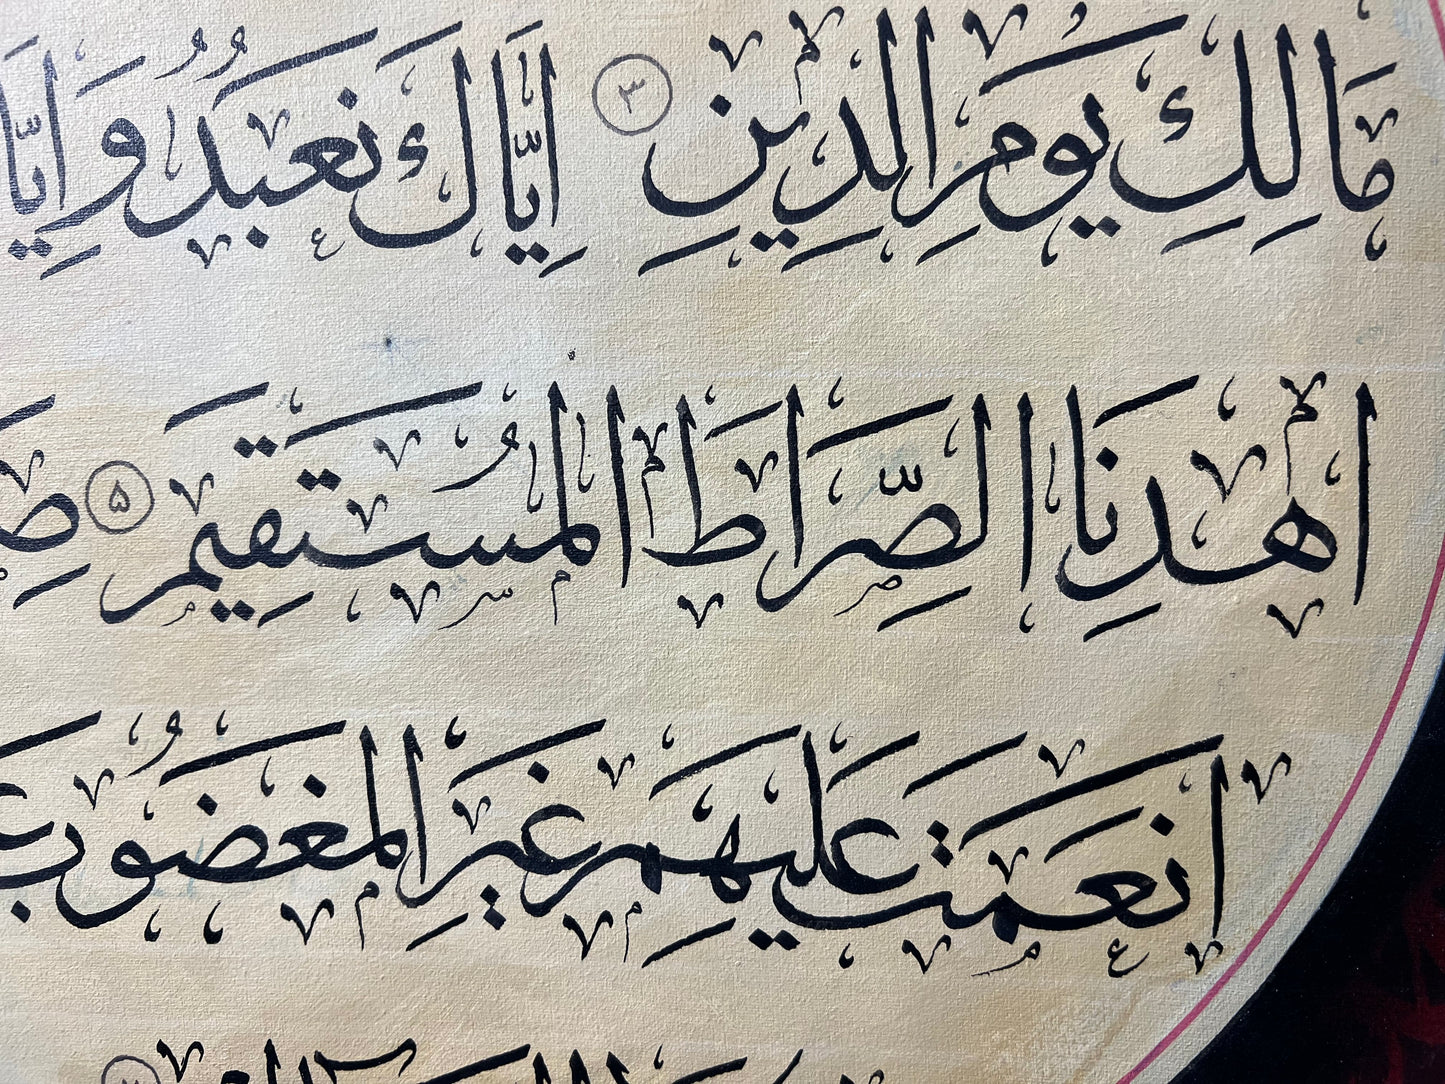 مَالِكِ يَوْمِ الدِّينِ ٣ اِيَّاكَ نَعْبُدُ وَاِيَّا
اِهْدِنَا الصِّرَاطَ الْمُسْتَقِيمَ ۵ صِ
اَنْعَمْتَ عَلَيْهِمْ غَيْرِ الْمَغْضُوبِ عَ